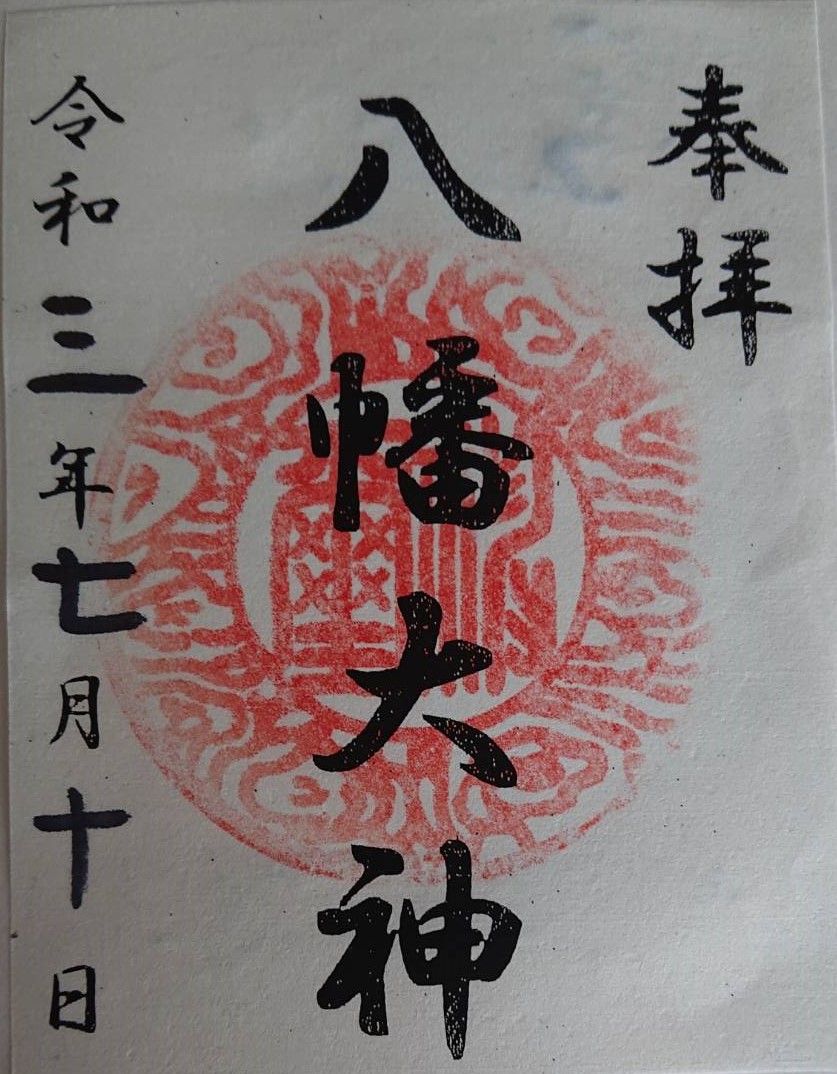 奉拝
八幡大神
令和三年七月十日